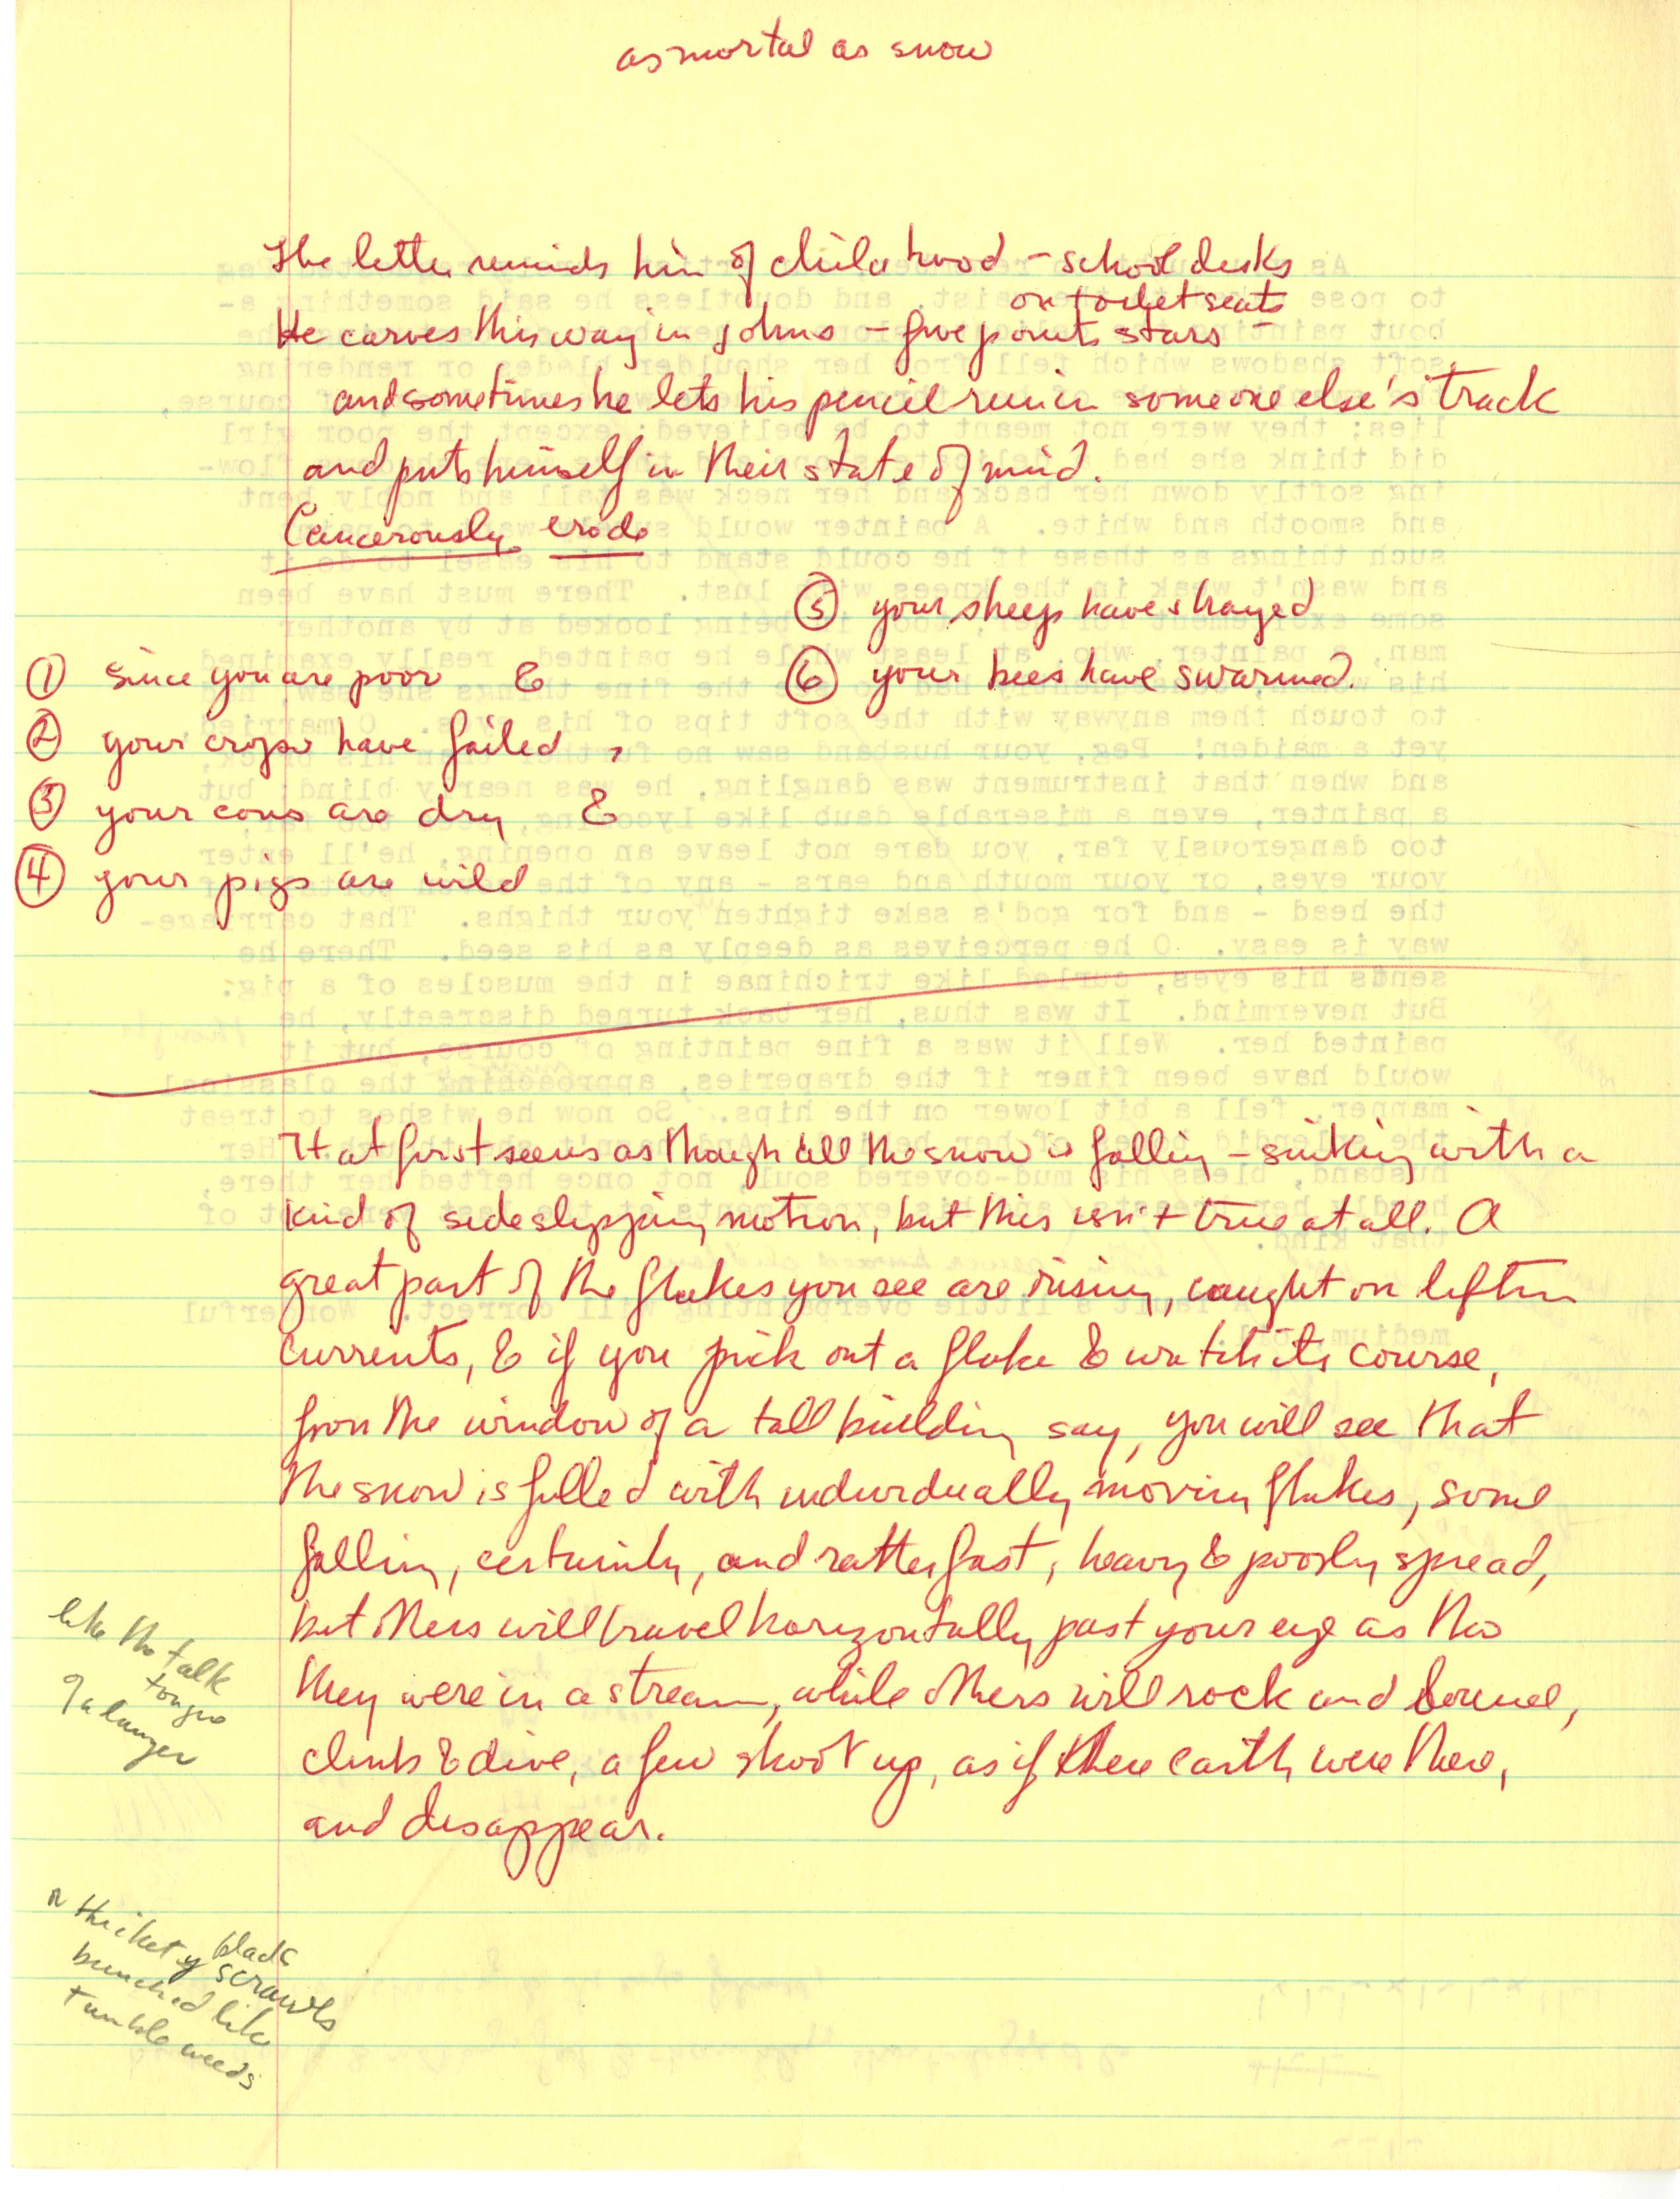 as mortal as snow
The letter reminds him of childhood - school desks
on toilet seats
He carves this way in johns - five points stars -
and sometimes he lets his pencil run in someone else's track
and puts himself in their state of mind.
Cancerously erode
⑤ your sheep have strayed
⑥ your bees have swarmed.
① since you are poor &
② your crops have failed ,
③ your cows are dry &
④ your pigs are wild
It at first seems as though all the snow is falling - sinking with a
kind of sideslipping motion, but this isn't true at all. A
great part of the flakes you see are rising, caught on lifting
currents, & if you pick out a flake & watch its course,
from the window of a tall building say, you will see that
the snow is filled with individually moving flakes, some
falling, certainly, and rather fast, heavy & poorly spread,
but others will travel horizontally past your eye as tho
they were in a stream, while others will rock and bounce,
climb & dive, a few shoot up, as if there earth were there,
and disappear.
like the talk
tongue
of a lunger
a thicket of black scrawls
bunched like
tumble weeds